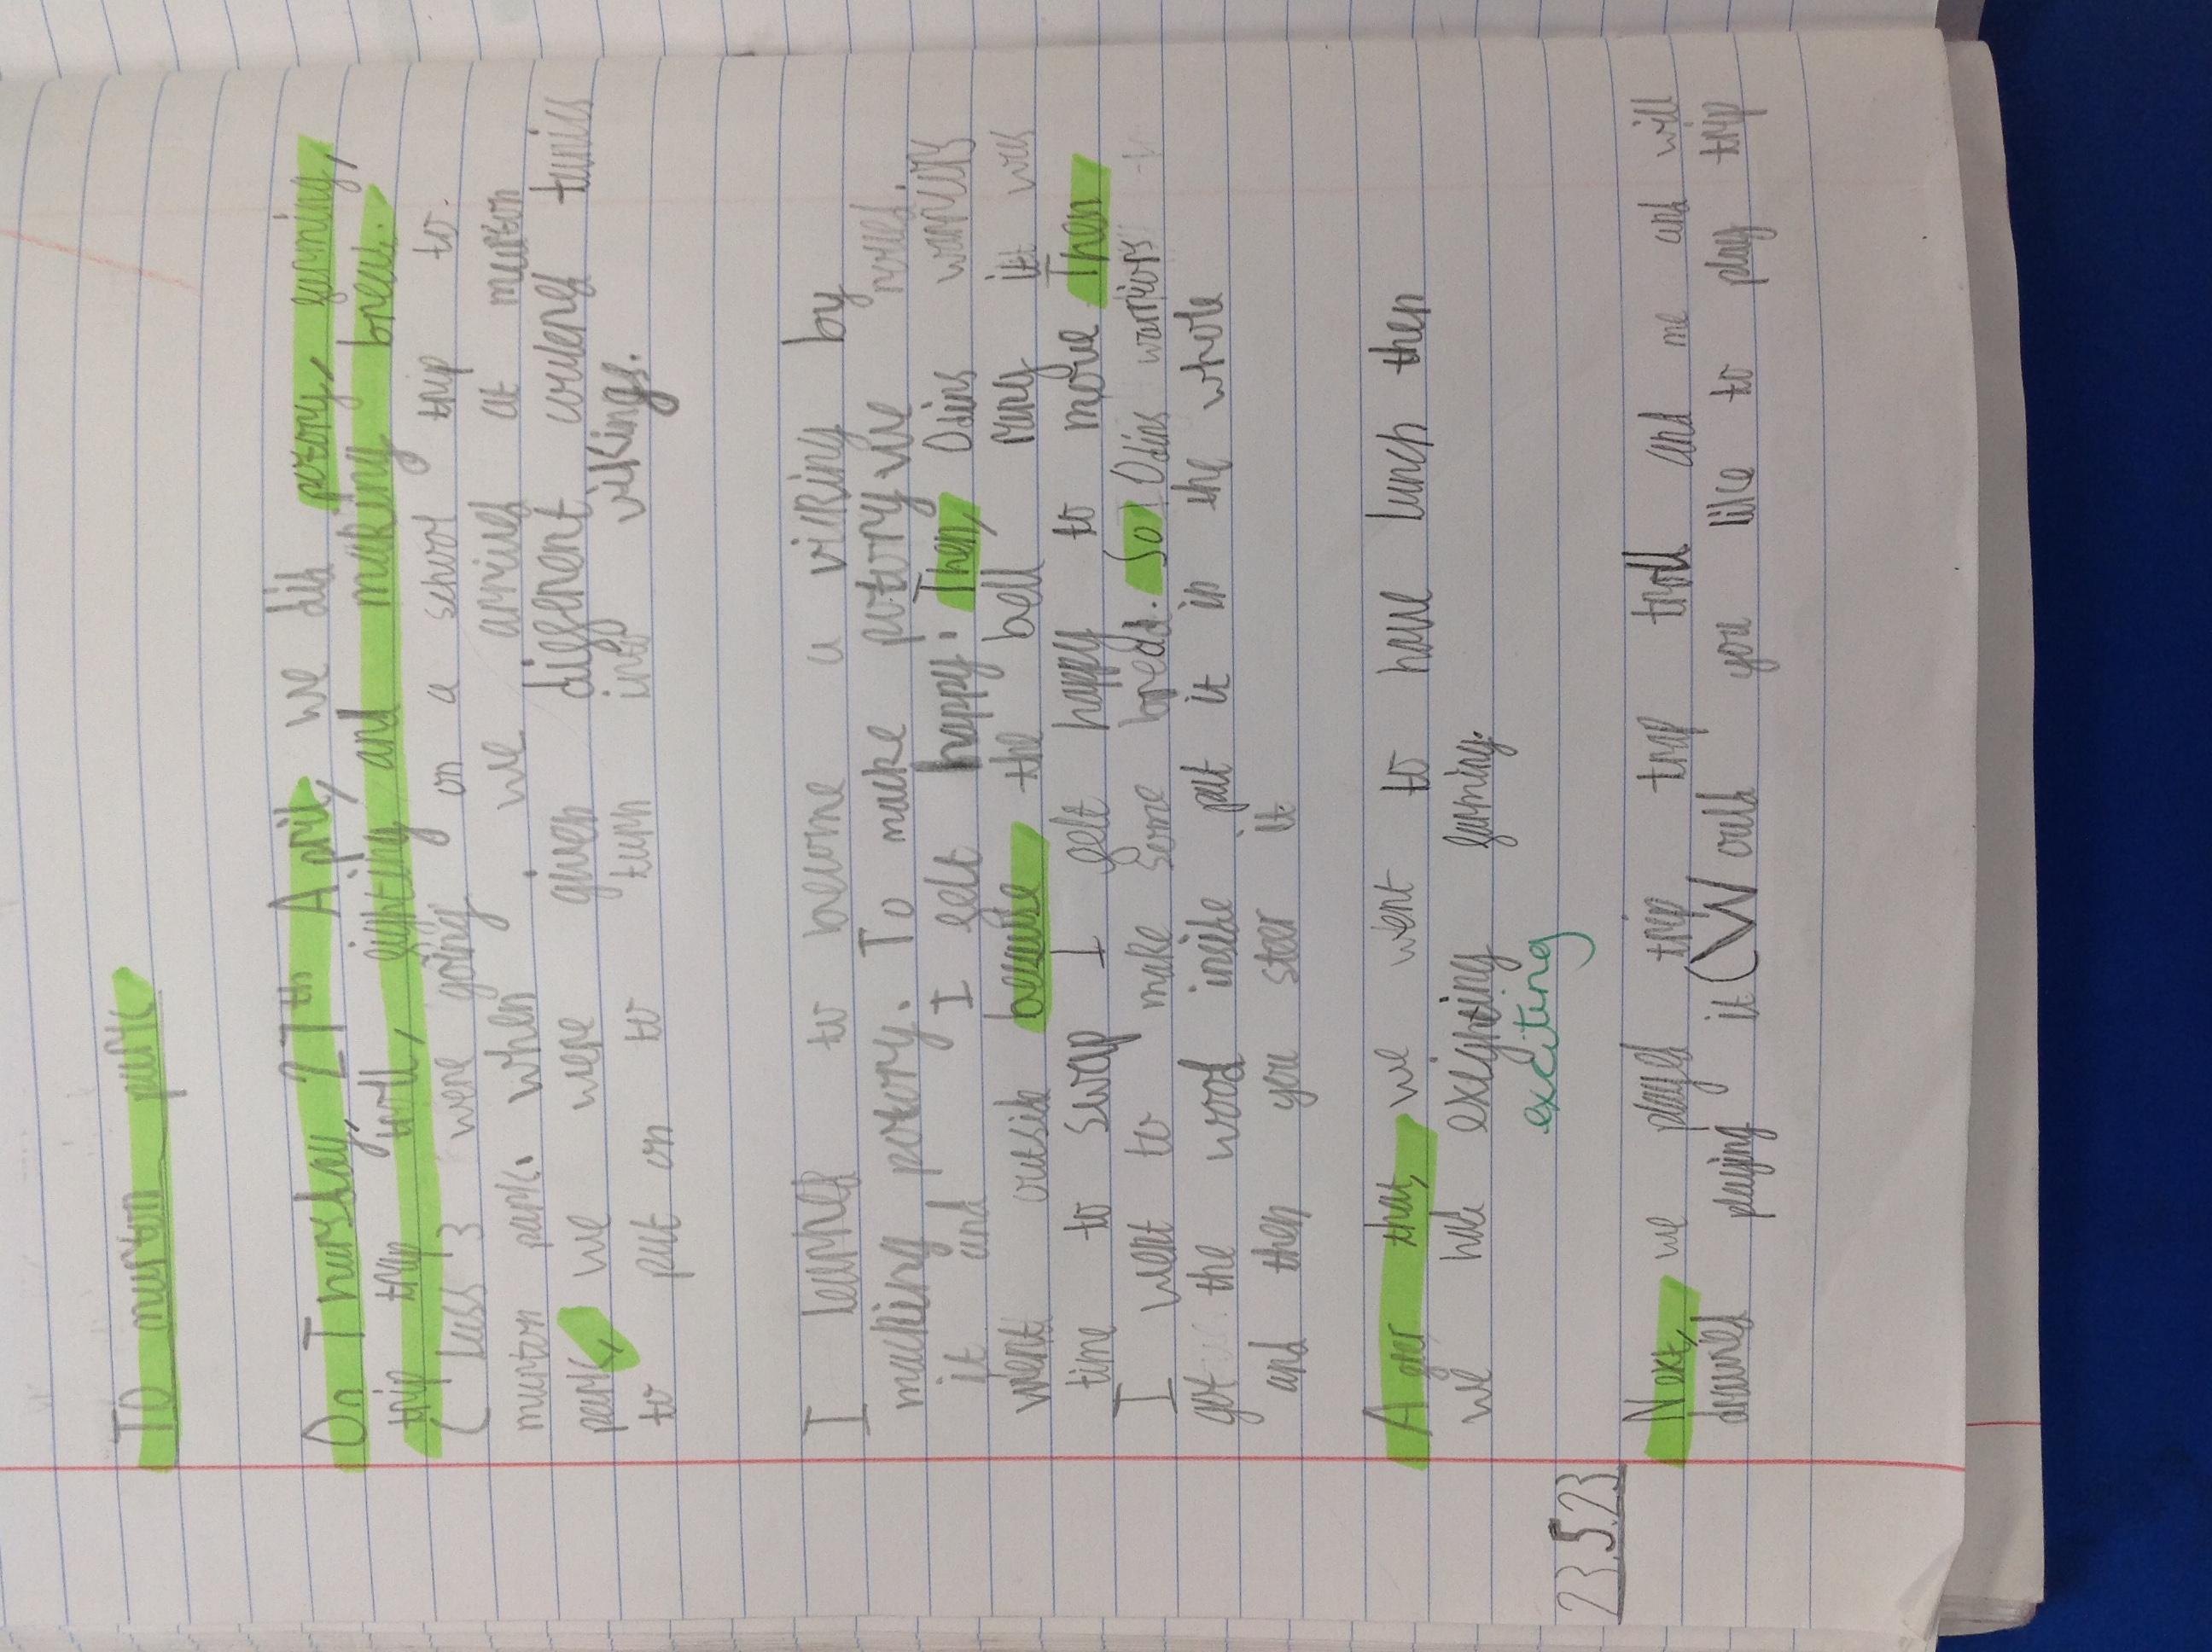 To murton park
On Thursday, 27th April, we did potory, farming,
trip trap troll, fighting and making bread.
Class 3 were going on a school trip to.
murton park. when we arrived at murton
park, we were given different coulerd tunics
to put on to turn into vikings.
I learned to become a viking by
macking potory. To make potory you
it and I felt happy. Then, Odins warriors
went outside because the bell rang it was
time to swap I felt happy to move Then
I went to make some bredd. So Odins warriors
got the wood inside put it in the whole
and then you ster it.
After that, we went to have lunch then
we had exighting farming.
exciting
23.5.23
Next, we played trip trap troll and me and will
playing it (Would you like to play trip